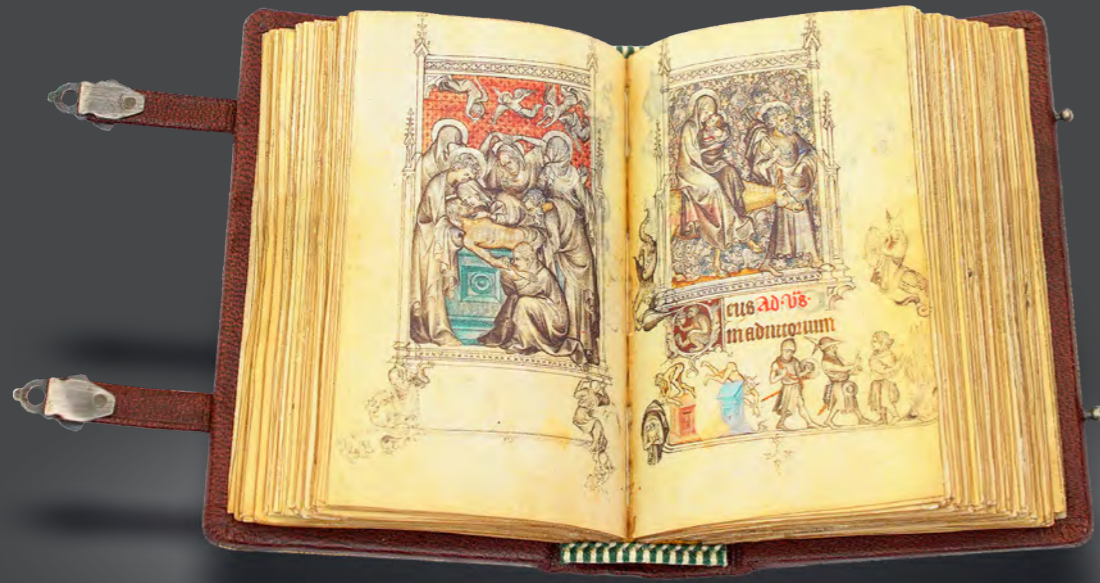 eus Ad vs.
in adiutorium